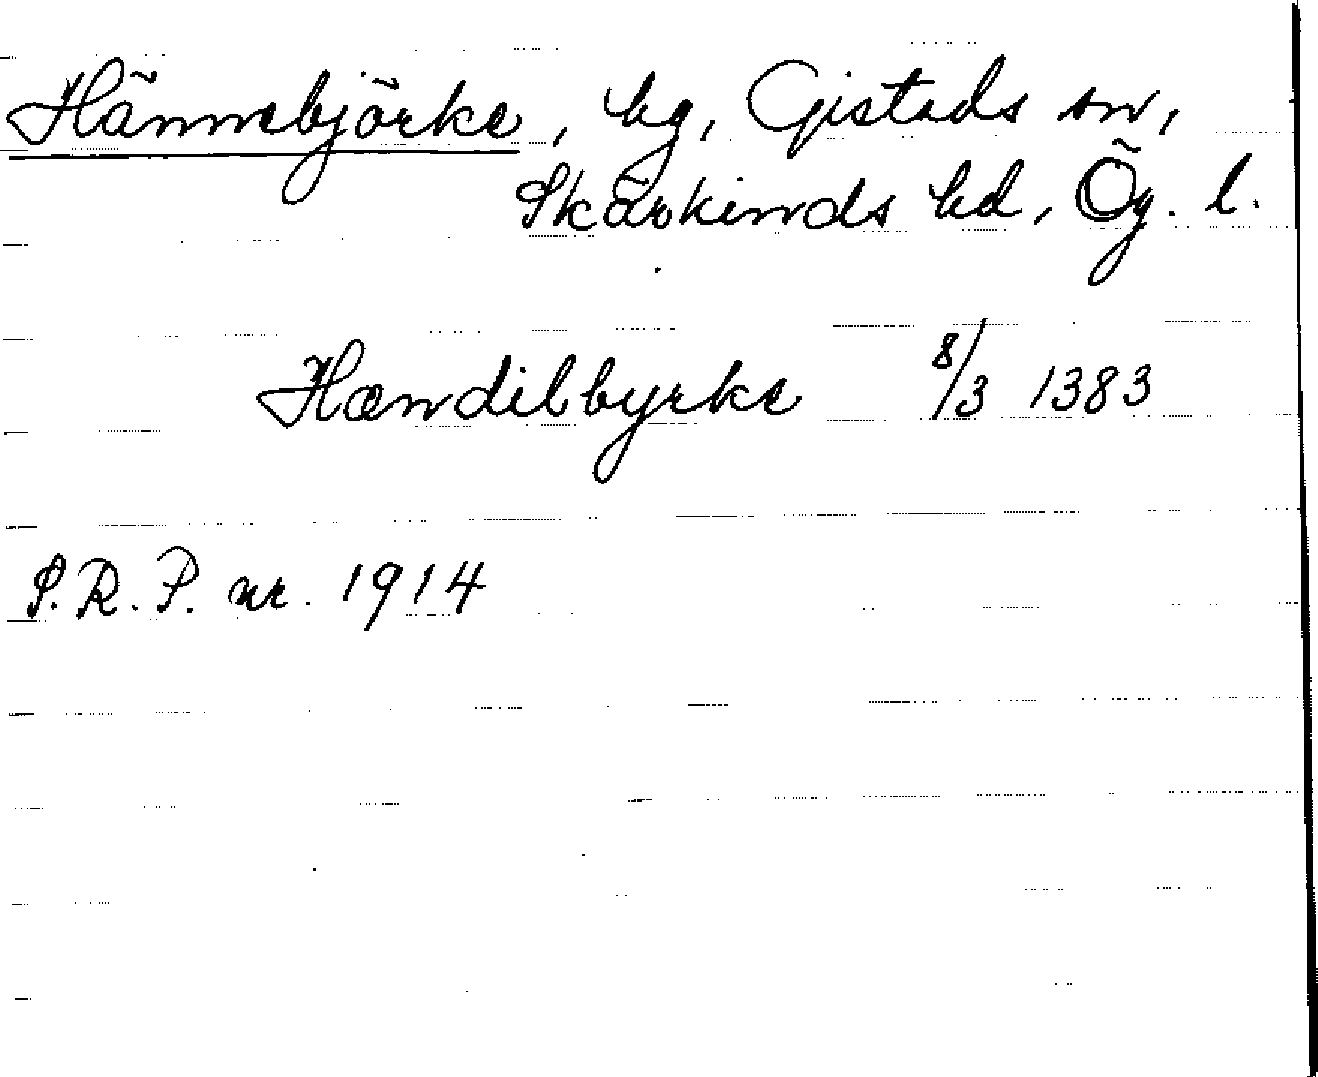 Hännebjörke, hg, Gistads sn,
Skärkinds hd, Ög. l.
Hændilbyrke 8/3 1383
S.R.P. nr. 1914